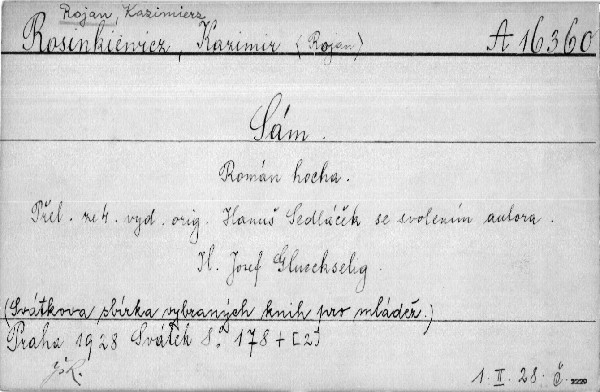 Rojan, Kazimierz
Rosinkiewicz, Kazimir (Rojan) A 16360
Sám.
Román hocha.
Přel. ze 4. vyd. orig. Hanuš Sedláček se svolením autora.
Il. Josef Glueckselig.
(Svátkova sbírka vybraných knih pro mládež.)
Praha 1928 Svátek 8° 178 + [2]
1. II. 28. Č.